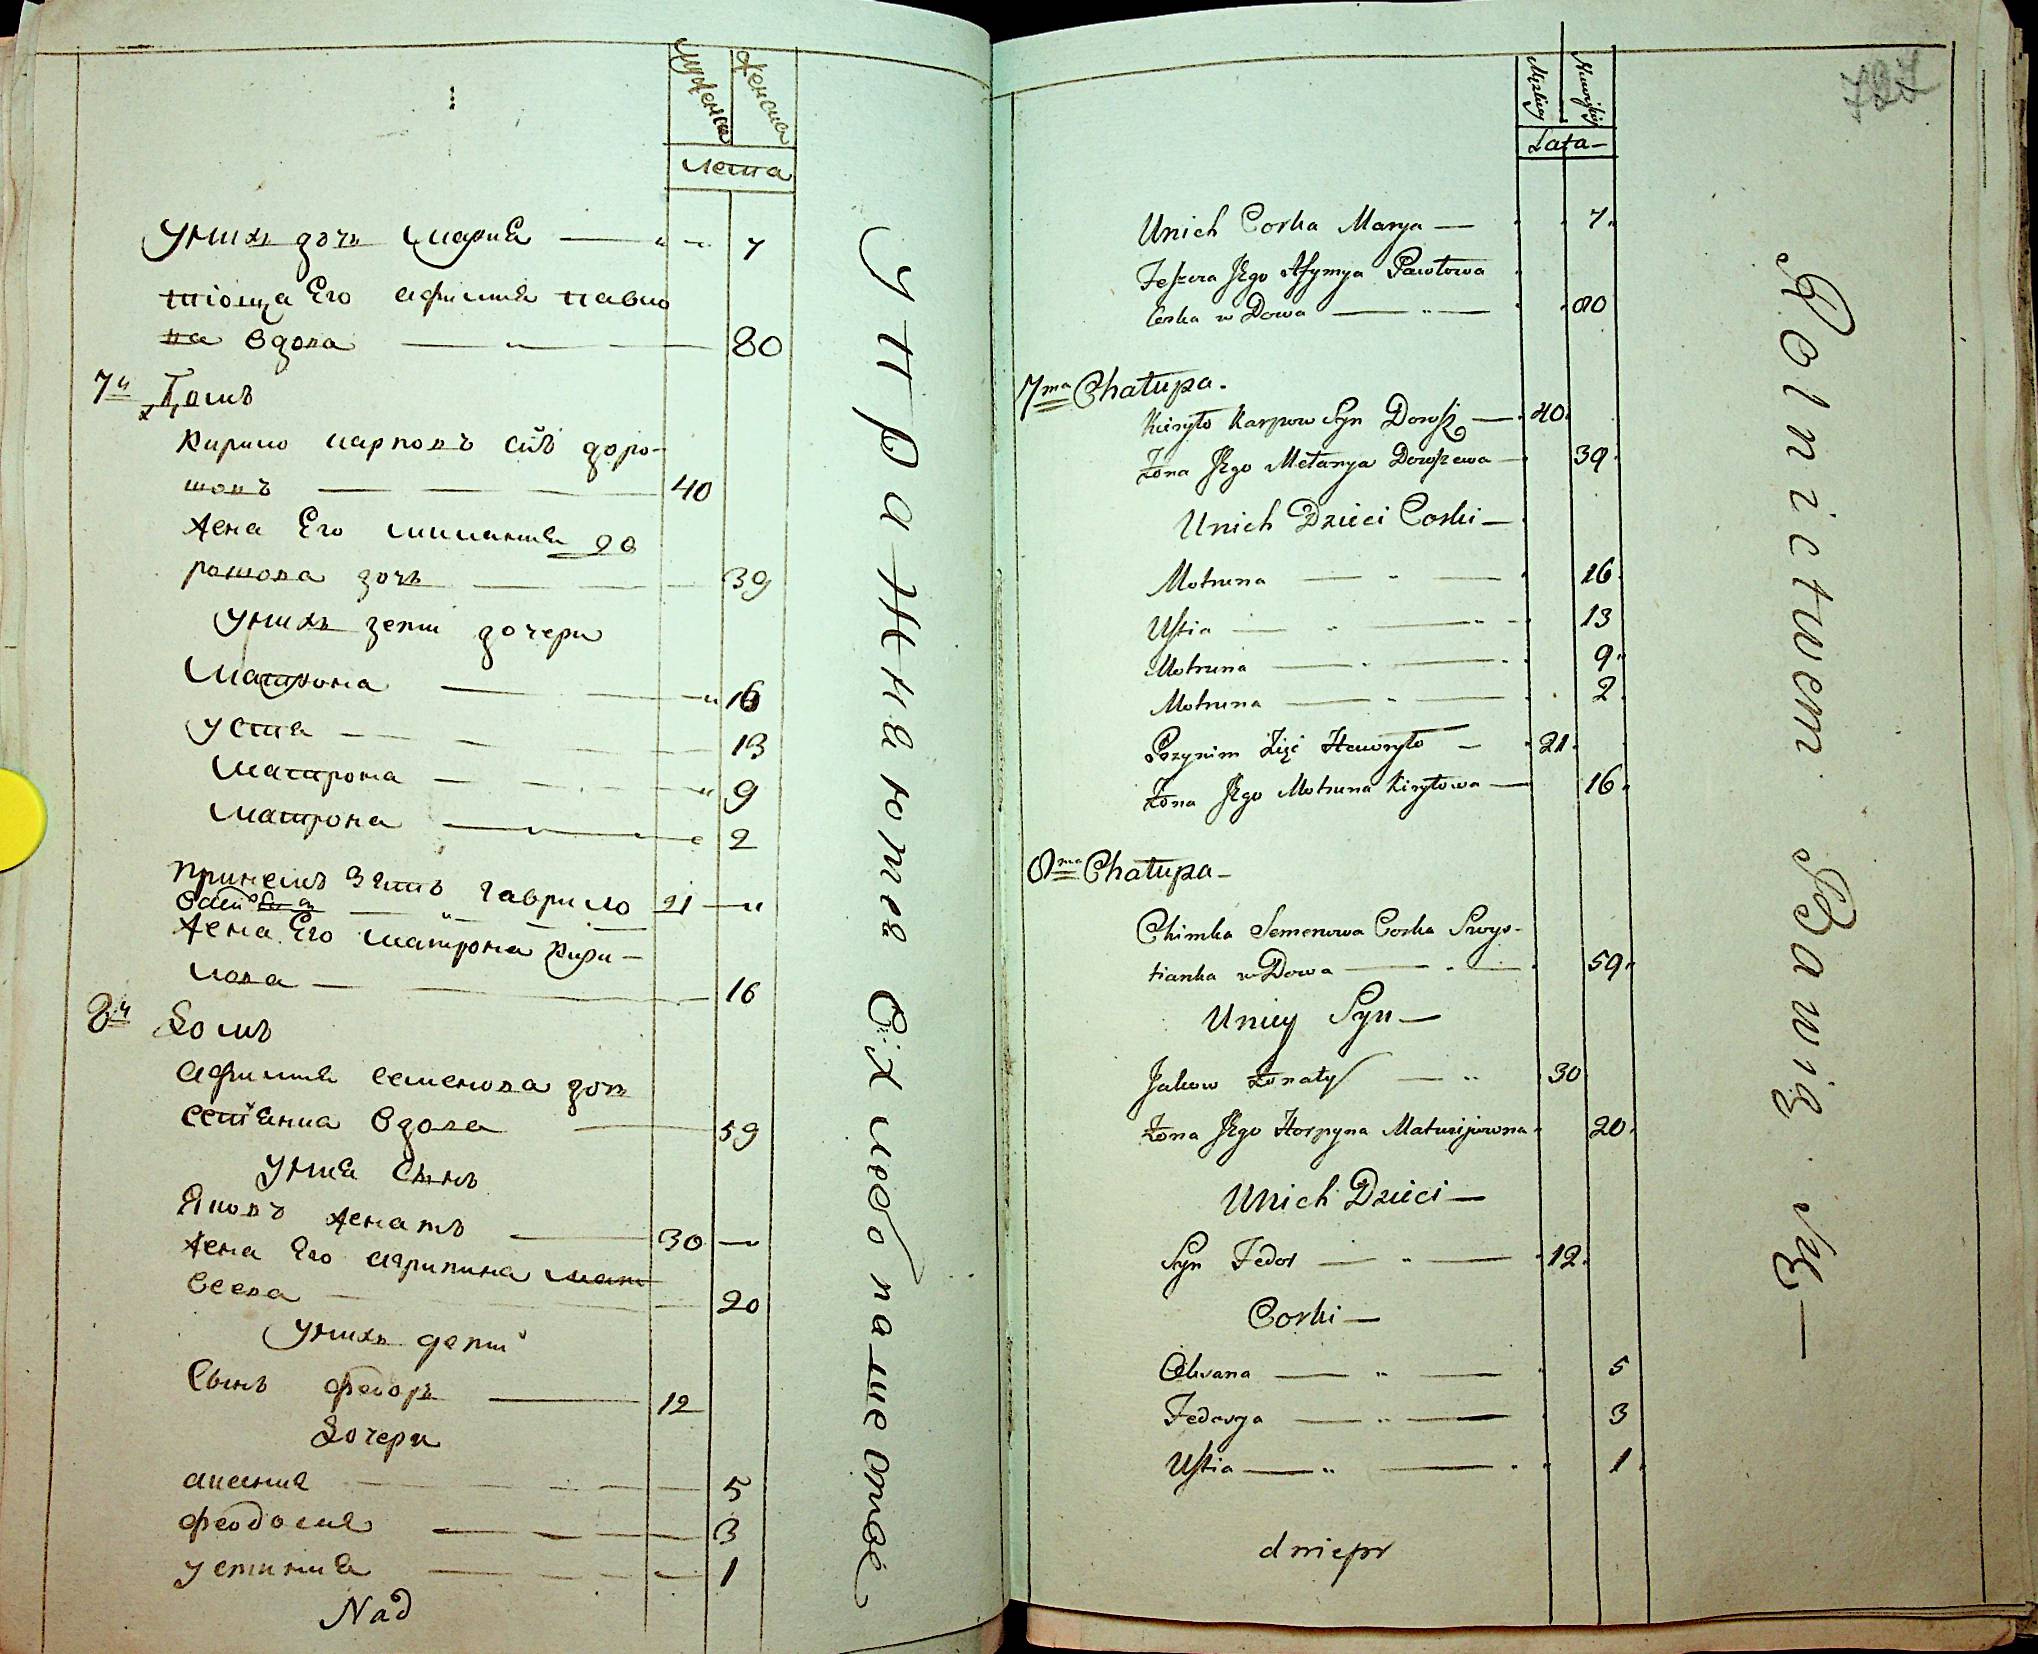 мужеска женска
лета
У них дочь Мария — 7
тіоща Его афимия павло
ва вдова — 80
7й Домъ
Кирило карповъ сынъ доро-
шовъ — 40
жена Его милания до
рошова дочь — 39
У них дети дочери
Матрона — 16
Устия — 13
Матрона — 9
Матрона — 2
Принемъ зять гаврило 21
жена Его матрона кири-
лова — 16
8й Домъ
афимия семенова дочь
вдова — 59
У нея сынъ
Яковъ женатъ — 30 —
жена Его агрипина мат
веева — 20
У них дети
Сынъ федоръ — 12
Дочери
аксиния — 5
феодосия — 3
устиния — 1
Nad
Упражняются Ехлебопашеством
727
Męskiey
Lata
Unich Corka Marya — 7
Teszcza Jego Afymya Pawłowa
Corka w Dowa — 80
7ma Chałupa.
Kiryło Karpow Syn Dorosz — 40
Żona Jego Mełanya Doroszewa — 39
Unich Dzieci Corki —
Motruna — 16
Ustia — 13
Motruna — 9
Motruna — 2
Przyim Zięć Hawryło — 21
Żona Jego Motruna Kiryłowa — 16
8ma Chałupa —
Chimka Semenowa Corka Swys-
tianka w Dowa — 59
Uniey Syn —
Jakow Żonaty — 30
Żona Jego Horpyna Matwijowna 20
Unich Dzieci —
Syn Fedor — 12
Corki —
Oksana — 5
Fedosya — 3
Ustia — 1
dniepr
Rolnictwem Bawią się —